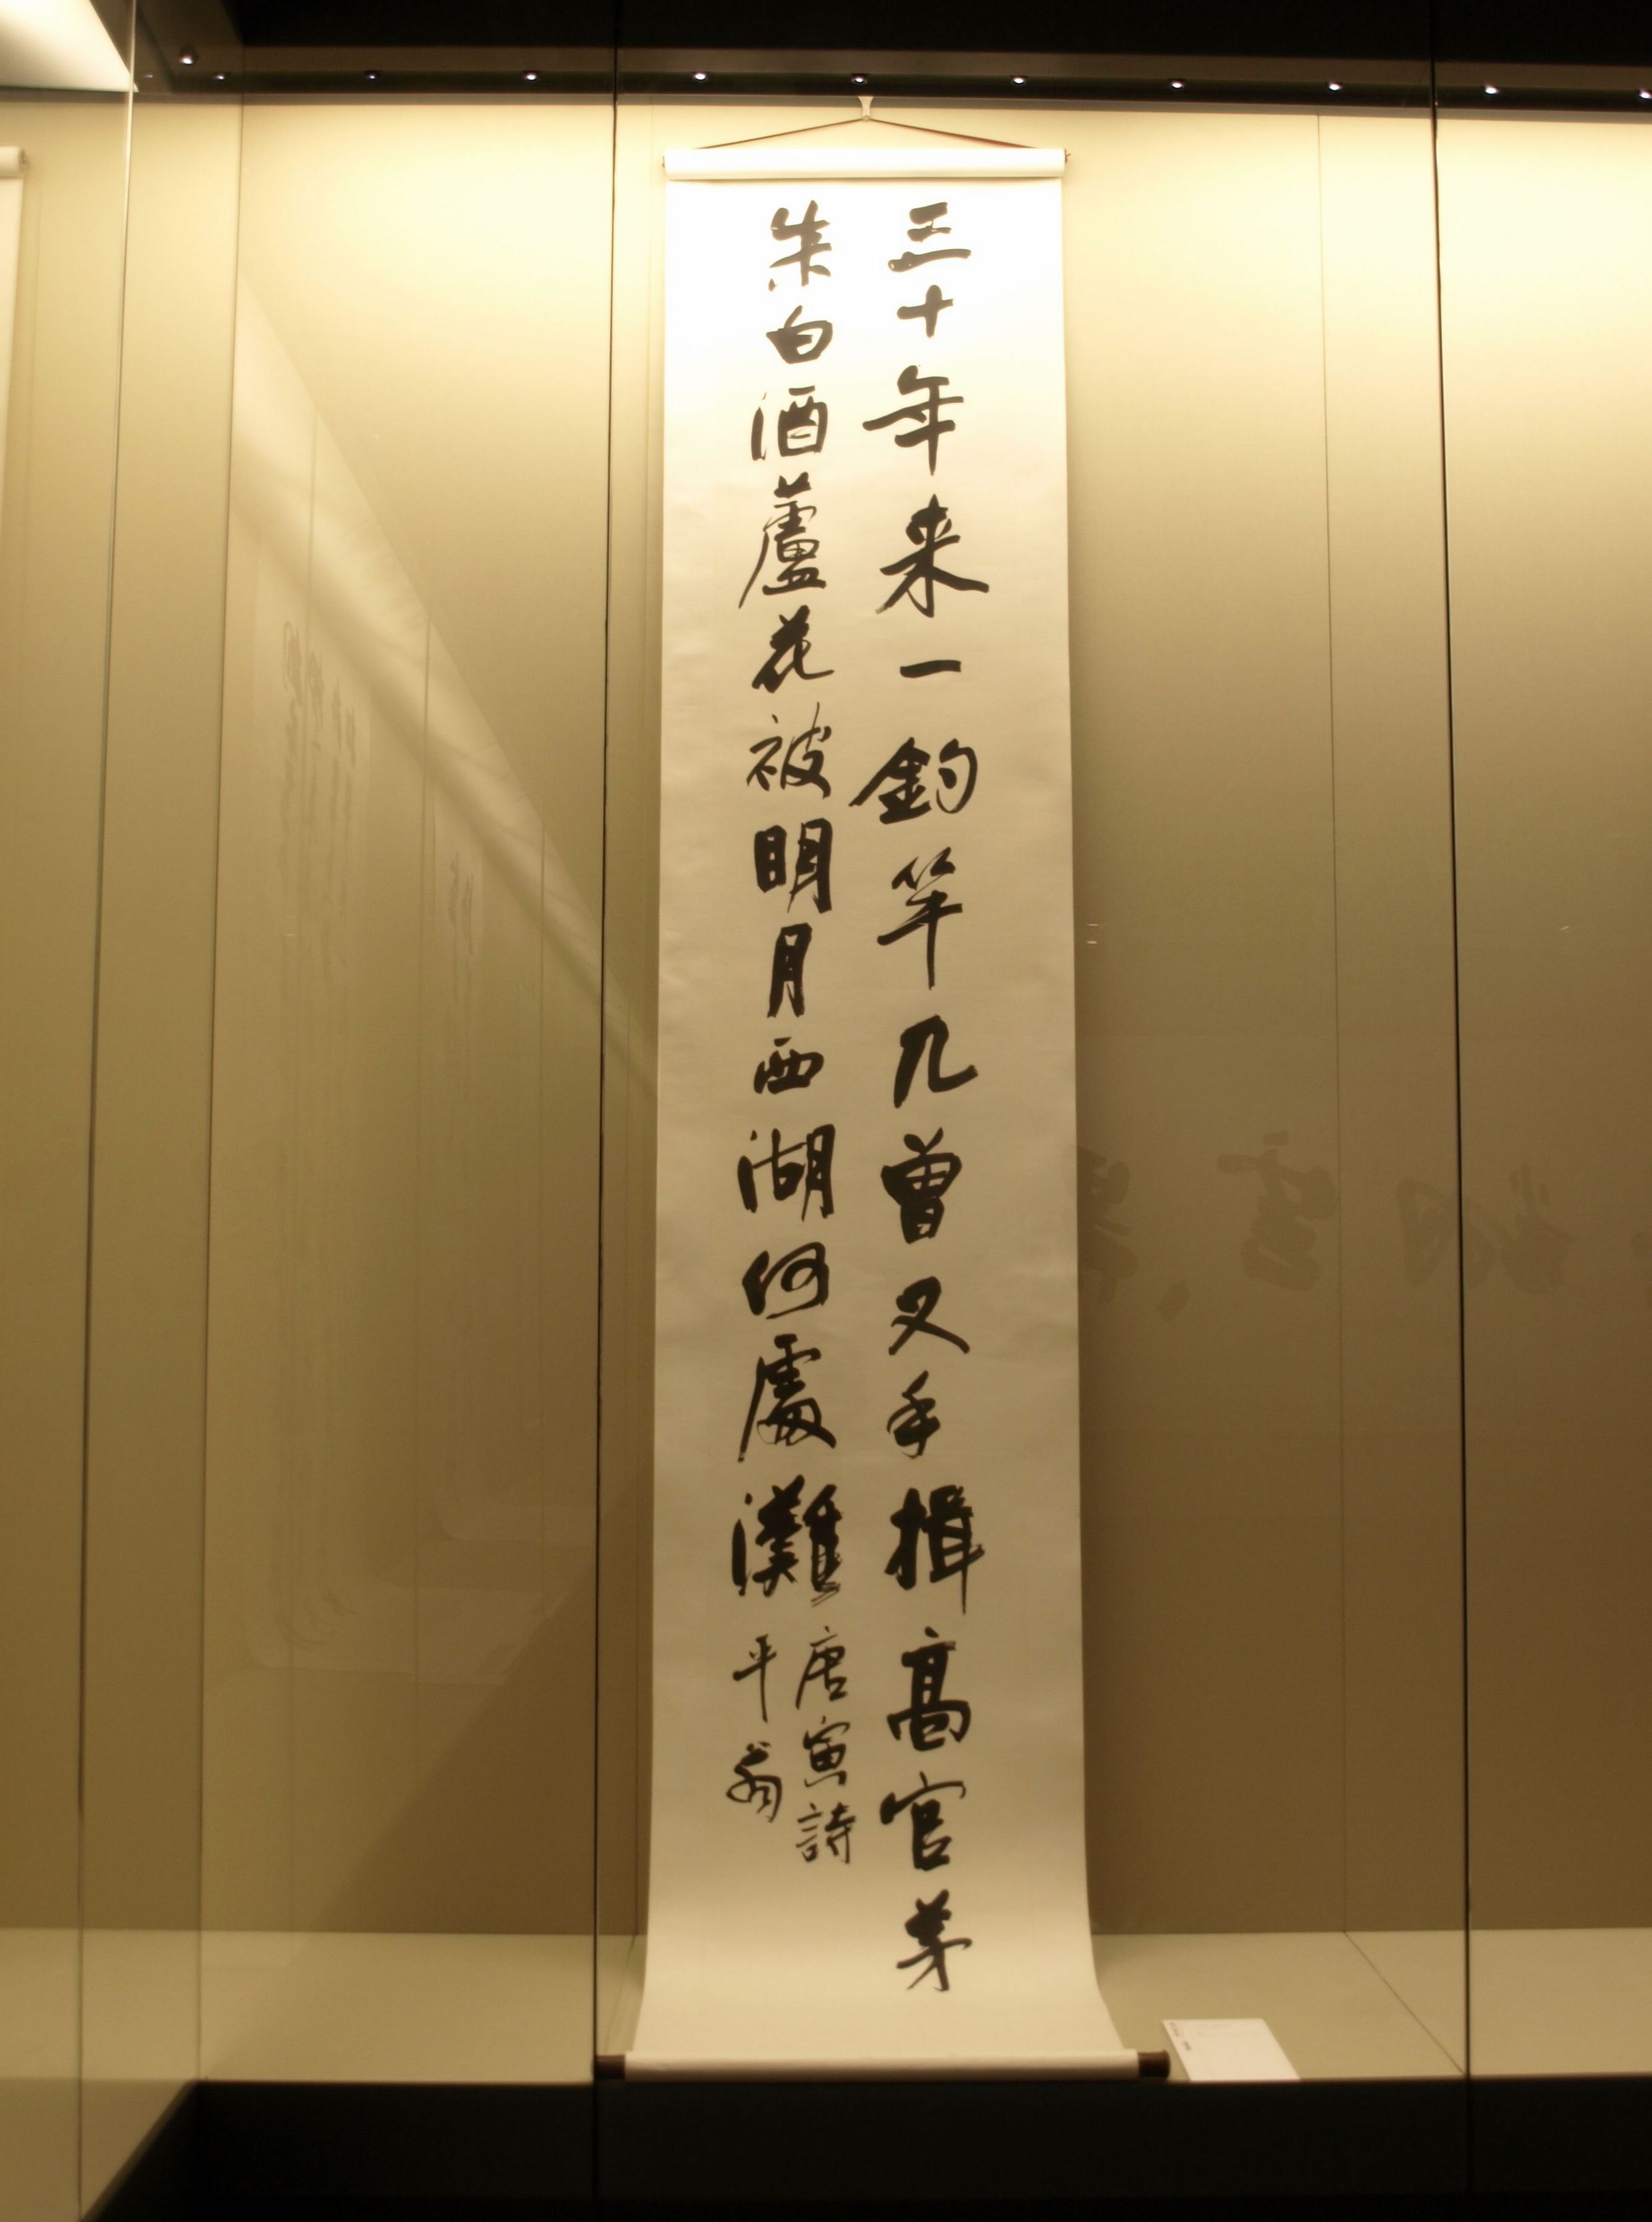 三十年来一釣竿几曾叉手揖高官茅
柴白酒蘆花被明月西湖何處灘
唐寅詩
平翁